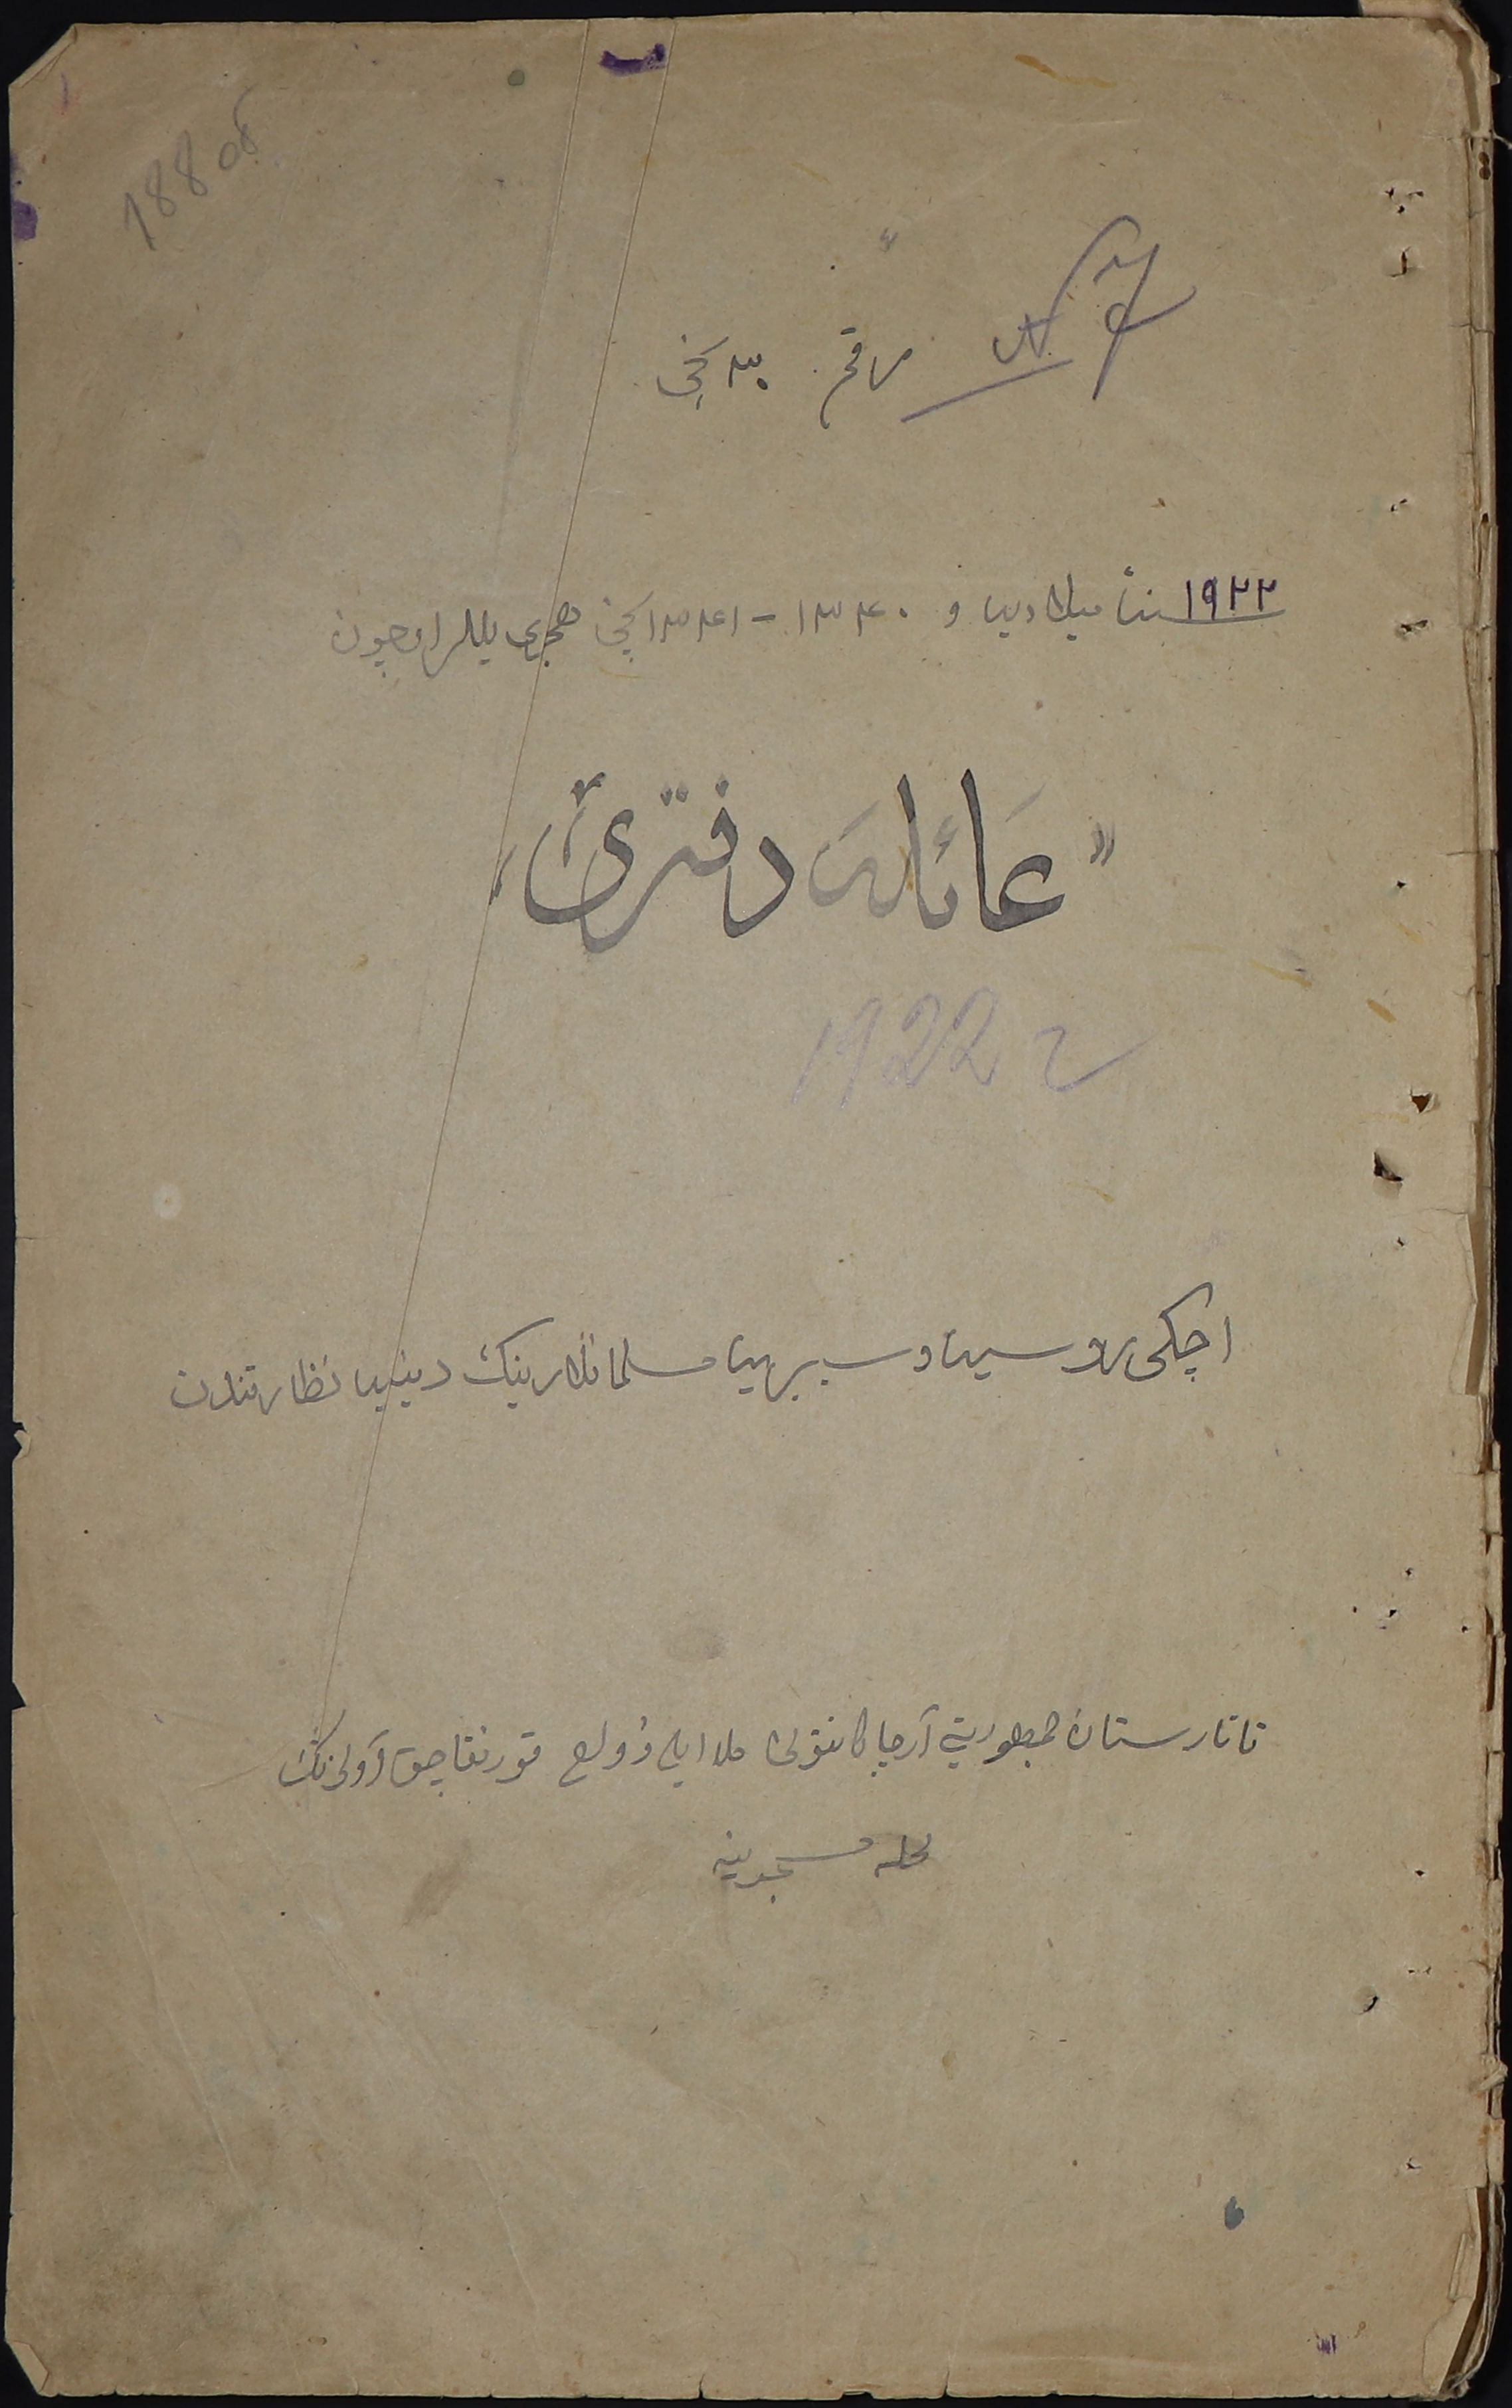 188 об
№ 7
رقم ٣٠ نچی
١٩٢٢ سنۀ میلادیه و ١٣٤٠ - ١٣٤١ نچی هجری یللر اوچون
"عائله دفتری"
1922 г
اچکی روسیه و سبریه مسلمانلارینڭ دینیه نظارتندن
تاتارستان جمهوریتی آرچا کانتونی ملا ایلی وولصی قورنقاچق آولی نڭ
محله مسجدینه